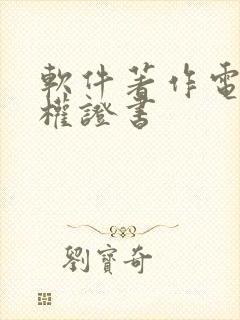 軟件著作電
權證書
劉寶奇